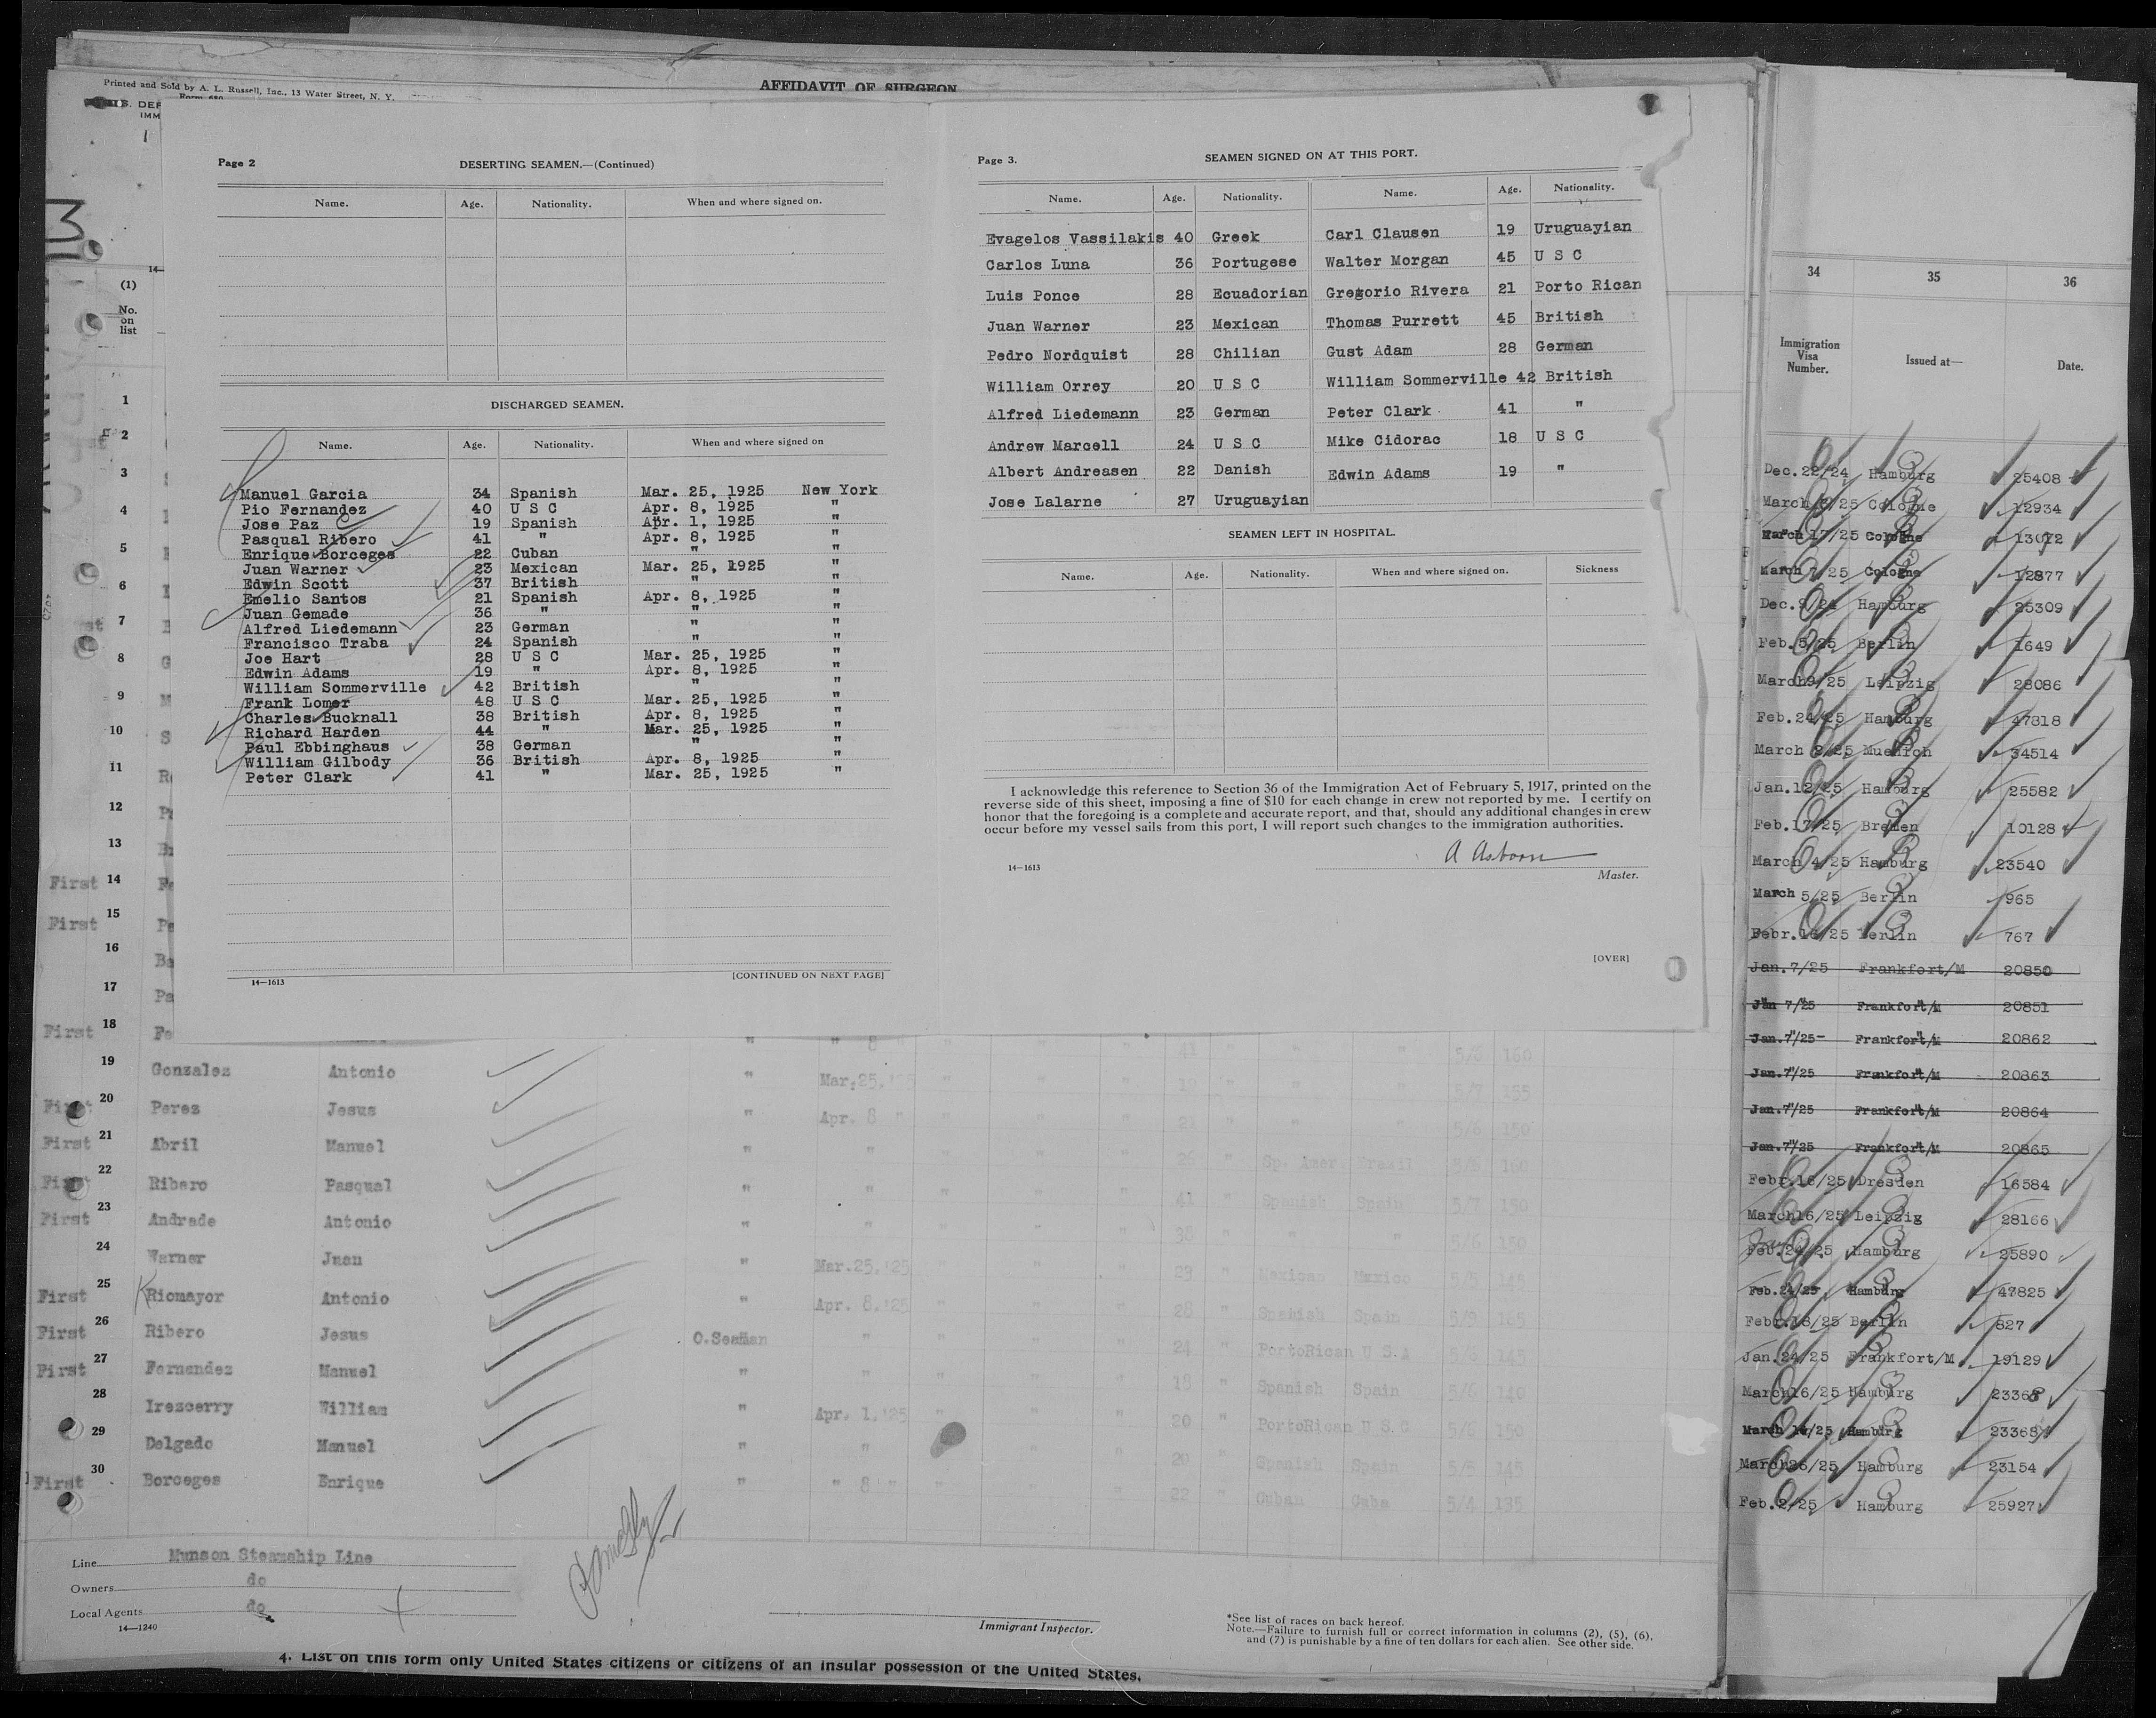 AFFIDAVIT OF SURGEON
Printed and Sold by A. L. Russell, Inc., 13 Water Street, N. Y.
(1)
No.
on
list
Page 2
DESERTING SEAMEN.—(Continued)
Name. Age. Nationality. When and where signed on.
DISCHARGED SEAMEN.
Name. Age. Nationality. When and where signed on
Manuel Garcia 34 Spanish Mar. 25, 1925 New York
Pio Fernandez 40 U S C Apr. 8, 1925 "
Jose Paz 19 Spanish Apr. 1, 1925 "
Pasqual Ribero 41 " Apr. 8, 1925 "
Enrique Borceges 22 Cuban " "
Juan Warner 23 Mexican Mar. 25, 1925 "
Edwin Scott 37 British " "
Emelio Santos 21 Spanish Apr. 8, 1925 "
Juan Gemade 36 " " "
Alfred Liedemann 23 German " "
Francisco Traba 24 Spanish " "
Joe Hart 28 U S C Mar. 25, 1925 "
Edwin Adams 19 " Apr. 8, 1925 "
William Sommerville 42 British " "
Frank Lomer 48 U S C Mar. 25, 1925 "
Charles Bucknall 38 British Apr. 8, 1925 "
Richard Harden 44 " Mar. 25, 1925 "
Paul Ebbinghaus 38 German " "
William Gilbody 36 British Apr. 8, 1925 "
Peter Clark 41 " Mar. 25, 1925 "
14—1613
[CONTINUED ON NEXT PAGE]
Page 3.
SEAMEN SIGNED ON AT THIS PORT.
Name. Age. Nationality. Name. Age. Nationality.
Evagelos Vassilakis 40 Greek Carl Clausen 19 Uruguayian
Carlos Luna 36 Portugese Walter Morgan 45 U S C
Luis Ponce 28 Ecuadorian Gregorio Rivera 21 Porto Rican
Juan Warner 23 Mexican Thomas Purrett 45 British
Pedro Nordquist 28 Chilian Gust Adam 28 German
William Orrey 20 U S C William Sommerville 42 British
Alfred Liedemann 23 German Peter Clark 41 "
Andrew Marcell 24 U S C Mike Cidorac 18 U S C
Albert Andreasen 22 Danish Edwin Adams 19 "
Jose Lalarne 27 Uruguayian
SEAMEN LEFT IN HOSPITAL.
Name. Age. Nationality. When and where signed on. Sickness
I acknowledge this reference to Section 36 of the Immigration Act of February 5, 1917, printed on the
reverse side of this sheet, imposing a fine of $10 for each change in crew not reported by me. I certify on
honor that the foregoing is a complete and accurate report, and that, should any additional changes in crew
occur before my vessel sails from this port, I will report such changes to the immigration authorities.
14—1613
Master.
[OVER]
1
2
3
4
5
6
7
8
9
10
11
12
13
First 14
First 15
16
17
First 18
19 Gonzalez Antonio " Mar.25,
First 20 Perez Jesus " Apr. 8 "
First 21 Abril Manuel " " 26 " Sp. Amer Brazil 5/6 160
First 22 Ribero Pasqual " " 41 " Spanish Spain 5/7 150
First 23 Andrade Antonio " 38 " 5/6 150
24 Warner Juan " Mar.25,'25 23 " Mexican Mexico 5/5 145
First 25 Riomayor Antonio " Apr. 8,'25 28 " Spanish Spain 5/9 165
First 26 Ribero Jesus O.Seaman " 24 " PortoRican U S A 5/6 145
First 27 Fernandez Manuel " " 18 " Spanish Spain 5/6 140
28 Irezcerry William " Apr. 1,'25 20 " PortoRican U S C 5/6 150
29 Delgado Manuel " " 20 " Spanish Spain 5/5 145
First 30 Borceges Enrique " " 8 " 22 " Cuban Cuba 5/4 135
Line Munson Steamship Line
Owners do
Local Agents do
14—1240
Immigrant Inspector.
*See list of races on back hereof.
Note.—Failure to furnish full or correct information in columns (2), (5), (6),
and (7) is punishable by a fine of ten dollars for each alien. See other side.
4. List on this form only United States citizens or citizens of an insular possession of the United States.
34 35 36
Immigration
Visa
Number. Issued at— Date.
Dec.22/24 Hamburg 25408
March 6/25 Cologne 12934
March 17/25 Cologne 13072
March 7/25 Cologne 12877
Dec.9/24 Hamburg 25309
Feb.5/25 Berlin 1649
March9/25 Leipzig 28086
Feb.24/25 Hamburg 47818
March 2/25 Muenich 34514
Jan.12/25 Hamburg 25582
Feb.17/25 Bremen 10128
March 4/25 Hamburg 23540
March 5/25 Berlin 965
Febr.16/25 Berlin 767
Jan.7/25 Frankfort/M 20850
Jan 7/25 Frankfort/M 20851
Jan.7/25 Frankfort/M 20862
Jan.7/25 Frankfort/M 20863
Jan.7/25 Frankfort/M 20864
Jan.7/25 Frankfort/M 20865
Febr.16/25 Dresden 16584
March16/25 Leipzig 28166
Feb.24/25 Hamburg 25890
Feb.24/25 Hamburg 47825
Febr.18/25 Berlin 827
Jan.24/25 Frankfort/M 19129
March16/25 Hamburg 23368
March 16/25 Hamburg 23368
March26/25 Hamburg 23154
Feb.2/25 Hamburg 25927